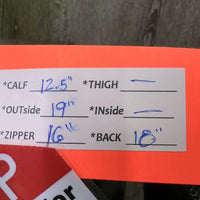 *CALF 12.5" *THIGH —
*OUTside 19" *INside: —
*ZIPPER 16" *BACK 18"
P
er